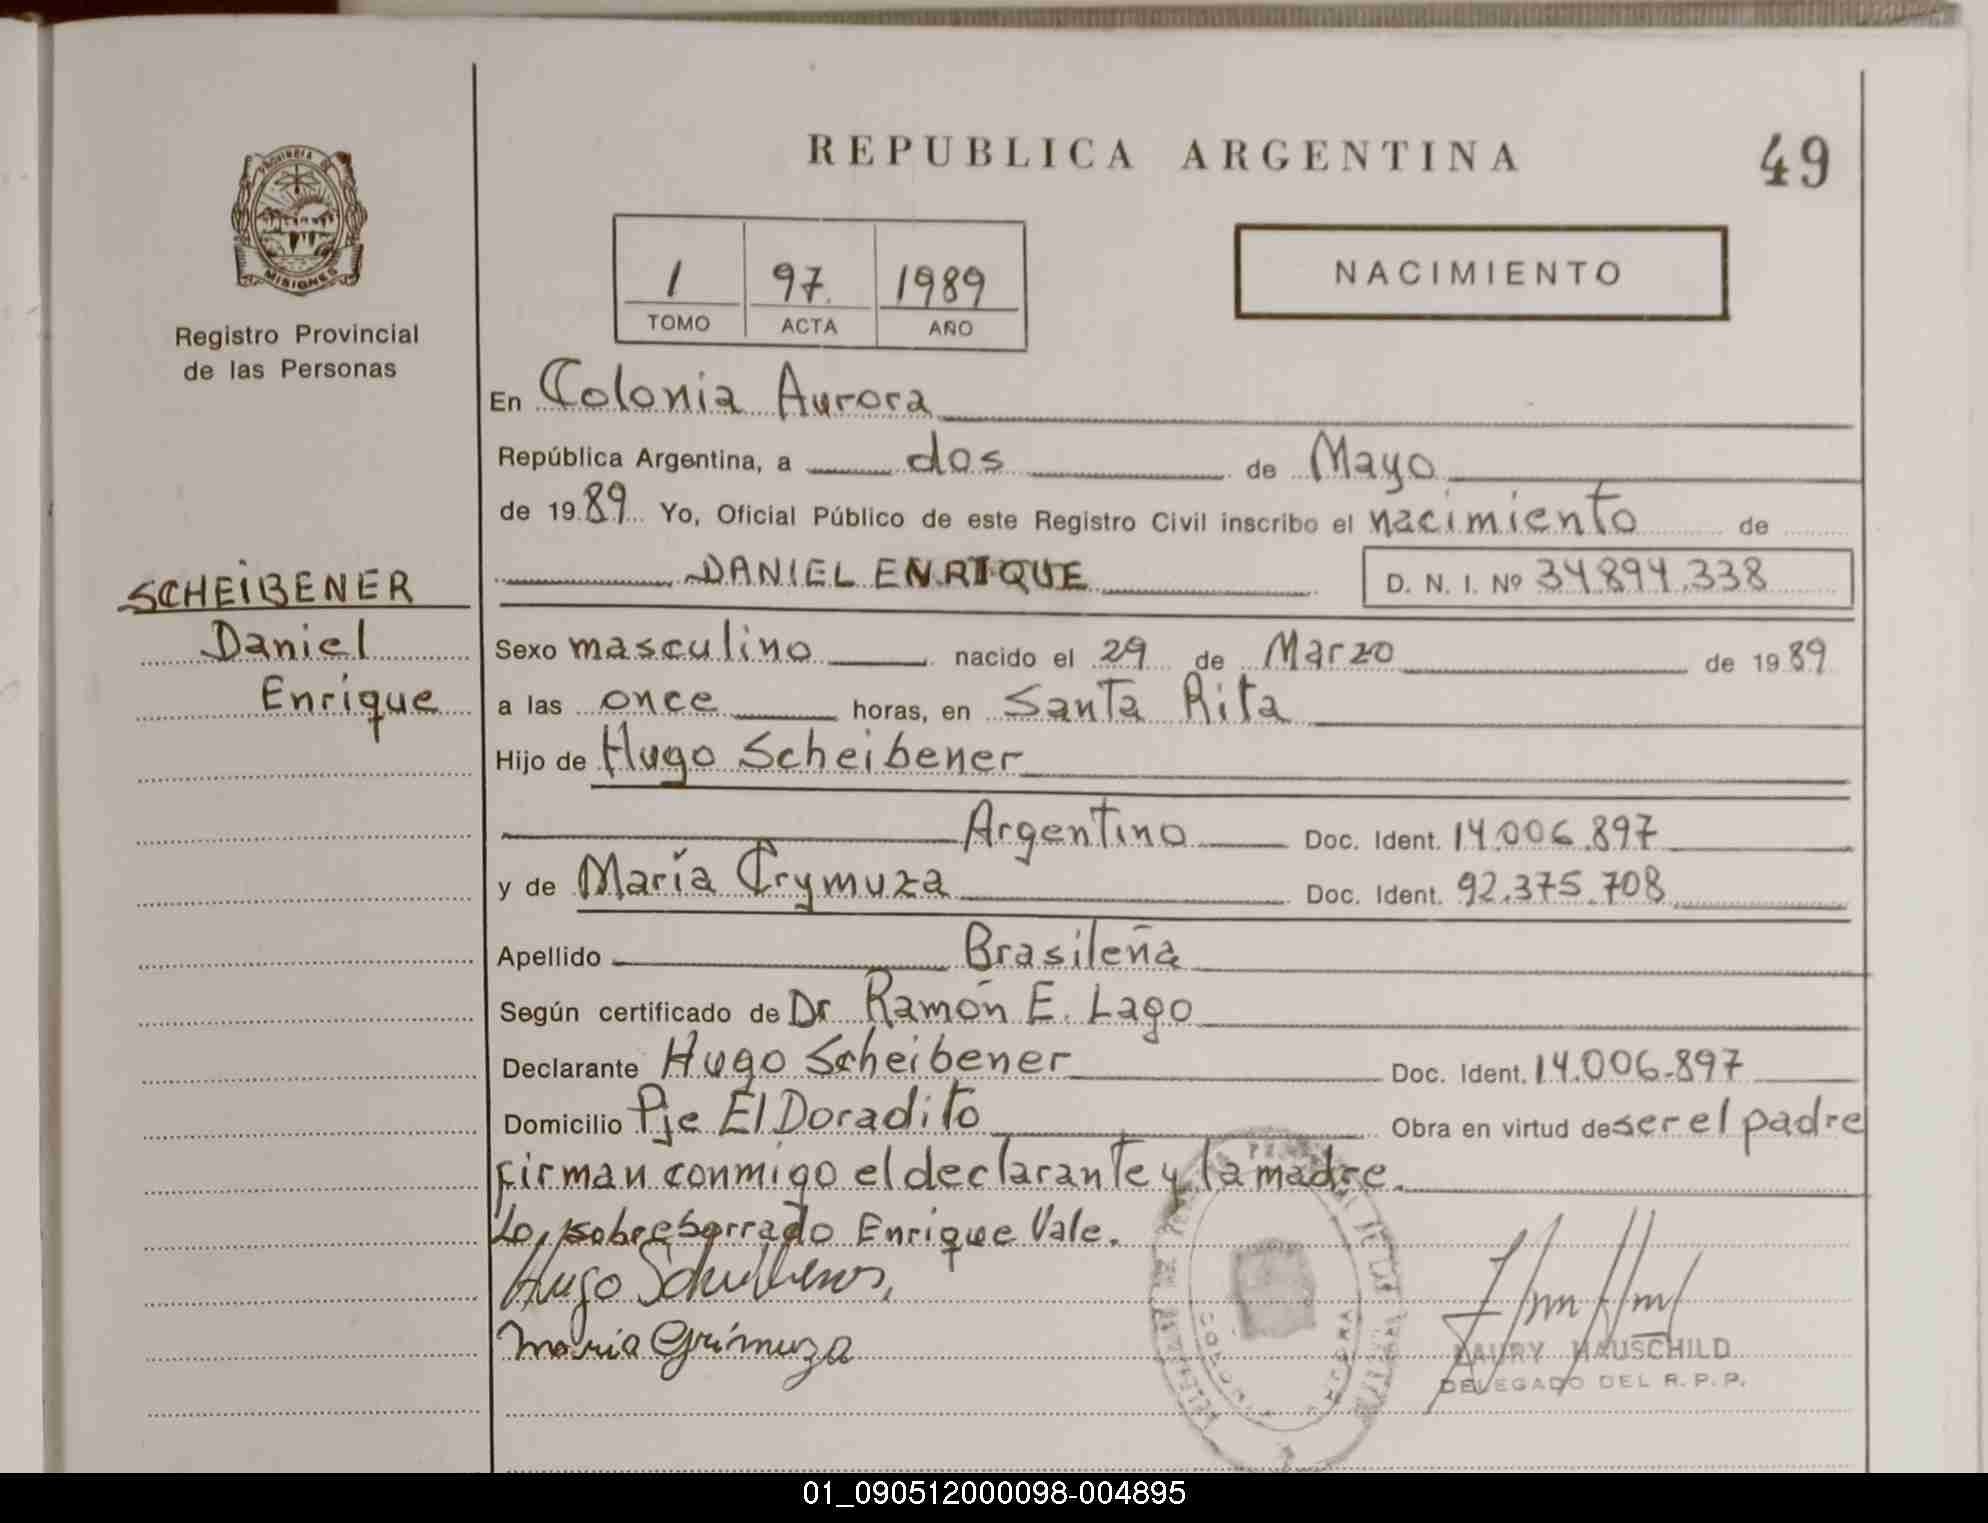 PROVINCIA DE
MISIONES
Registro Provincial
de las Personas
SCHEIBENER
Daniel
Enrique
REPUBLICA ARGENTINA 49
1 97 1989
TOMO ACTA AÑO
NACIMIENTO
En Colonia Aurora
República Argentina, a dos de Mayo
de 1989 Yo, Oficial Público de este Registro Civil inscribo el nacimiento de
DANIEL ENRIQUE D. N. I. Nº 34.894.338
Sexo masculino nacido el 29 de Marzo de 1989
a las once horas, en Santa Rita
Hijo de Hugo Scheibener
Argentino Doc. Ident. 14.006.897
y de María Crymuza Doc. Ident. 92.375.708
Apellido Brasileña
Según certificado de Dr Ramón E. Lago
Declarante Hugo Scheibener Doc. Ident. 14.006.897
Domicilio Pje El Doradito Obra en virtud de ser el padre
firman conmigo el declarante y la madre.
Lo sobreborrado Enrique Vale.
Hugo
Maria Grimuza
LAURY HAUSCHILD
DELEGADO DEL R.P.P.
01_090512000098-004895